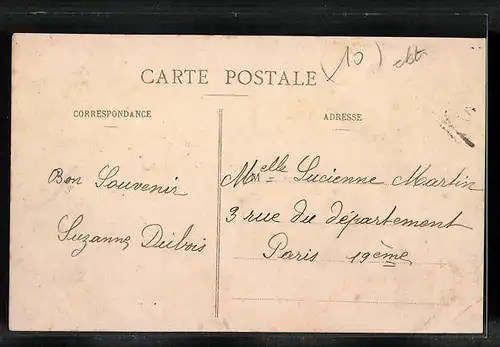 10) cbt
CARTE POSTALE
CORRESPONDANCE
ADRESSE
Bon Souvenir
Suzanne Dubois
Melle Lucienne Martin
3 rue du département
Paris 19ème